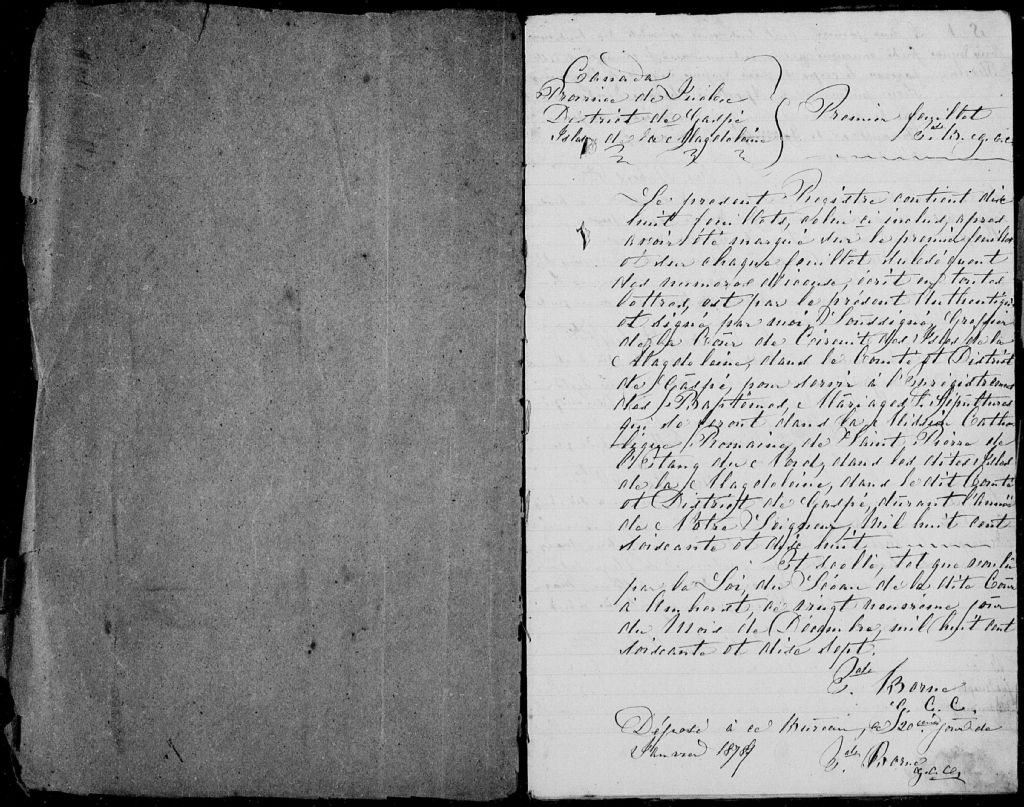 Canada
Province de Québec
District de Gaspé
Isles de la Magdeleine
Premier feuillet
E. B. g.c.c.
Le present Régistre contient dix
huit feuillets, celui ci inclus, apres
avoir été marqué sur le premier feuillet
et sur chaque feuillet subséquent
des numeros d'iceux, écrit en toutes
lettres, est par le présent Authentiqué
et signé par moi, Soussigné, Greffier
de la Cour de Circuit, des Isles de la
Magdeleine, dans le Comté et District
de Gaspé, pour servir à l'Enrégistrement
des Baptêmes, Mariages & Sépultures
qui se feront dans la Mission Catho
lique Romaine de Saint Pierre de
l'Etang du Nord, dans les dites Isles
de la Magdeleine, dans le dit Comté
et District de Gaspé, durant l'Année
de Notre Seigneur, Mil huit cent
soixante et dix huit
Et scellé, tel que voulu
par la Loi, du Sceau de la dite Cour
à Amherst, ce vingt neuvième jour
du Mois de Décembre, mil huit cent
soixante et dix sept.
Borne
G. C. C.
Déposé à ce Bureau, ce jour de
Janvier 1879
Borne
g.c.c.